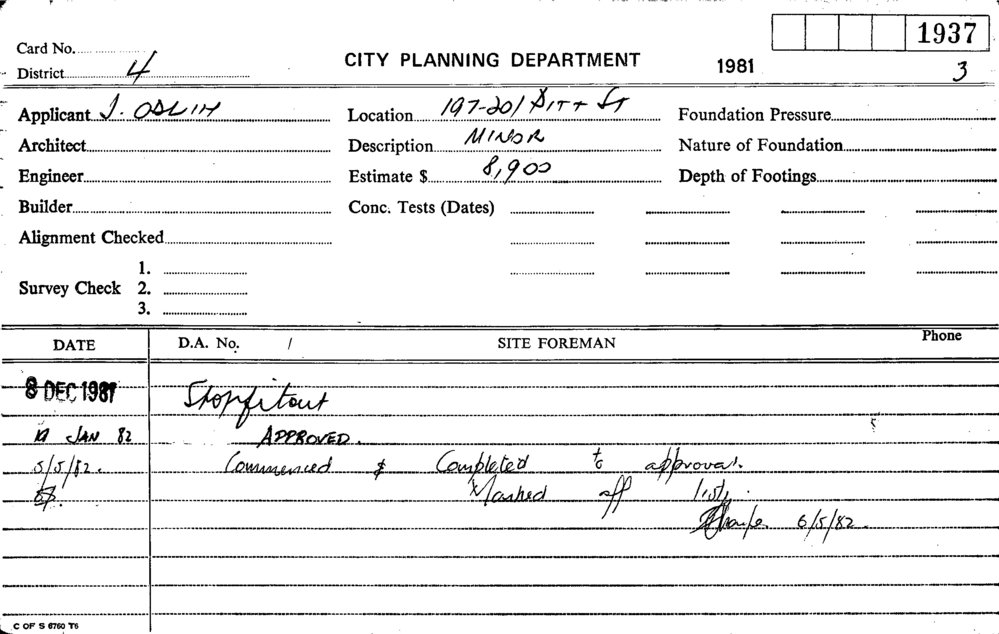 1937
Card No.
CITY PLANNING DEPARTMENT
1981
3
District 4
Applicant J. ODLIN
Location 197-201 Pitt St
Foundation Pressure
Architect
Description MINOR
Nature of Foundation
Engineer
Estimate $ 8,900
Depth of Footings
Builder
Conc. Tests (Dates)
Alignment Checked
1.
Survey Check 2.
3.
DATE
D.A. No. /
SITE FOREMAN
Phone
8 DEC 1981
Shopfitout
JAN 82
APPROVED.
5/5/82.
Commenced & Completed to approval.
Marked off list
6/5/82.
C OF S 6760 T6